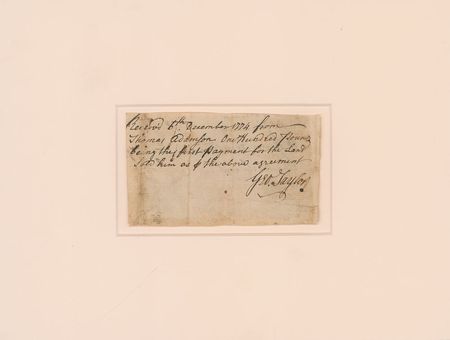 Received 6th December 1774 from
Thomas Adamson One Hundred Pounds
being the first payment for the Land
Sold him as p the above agreement
Geo. Taylor